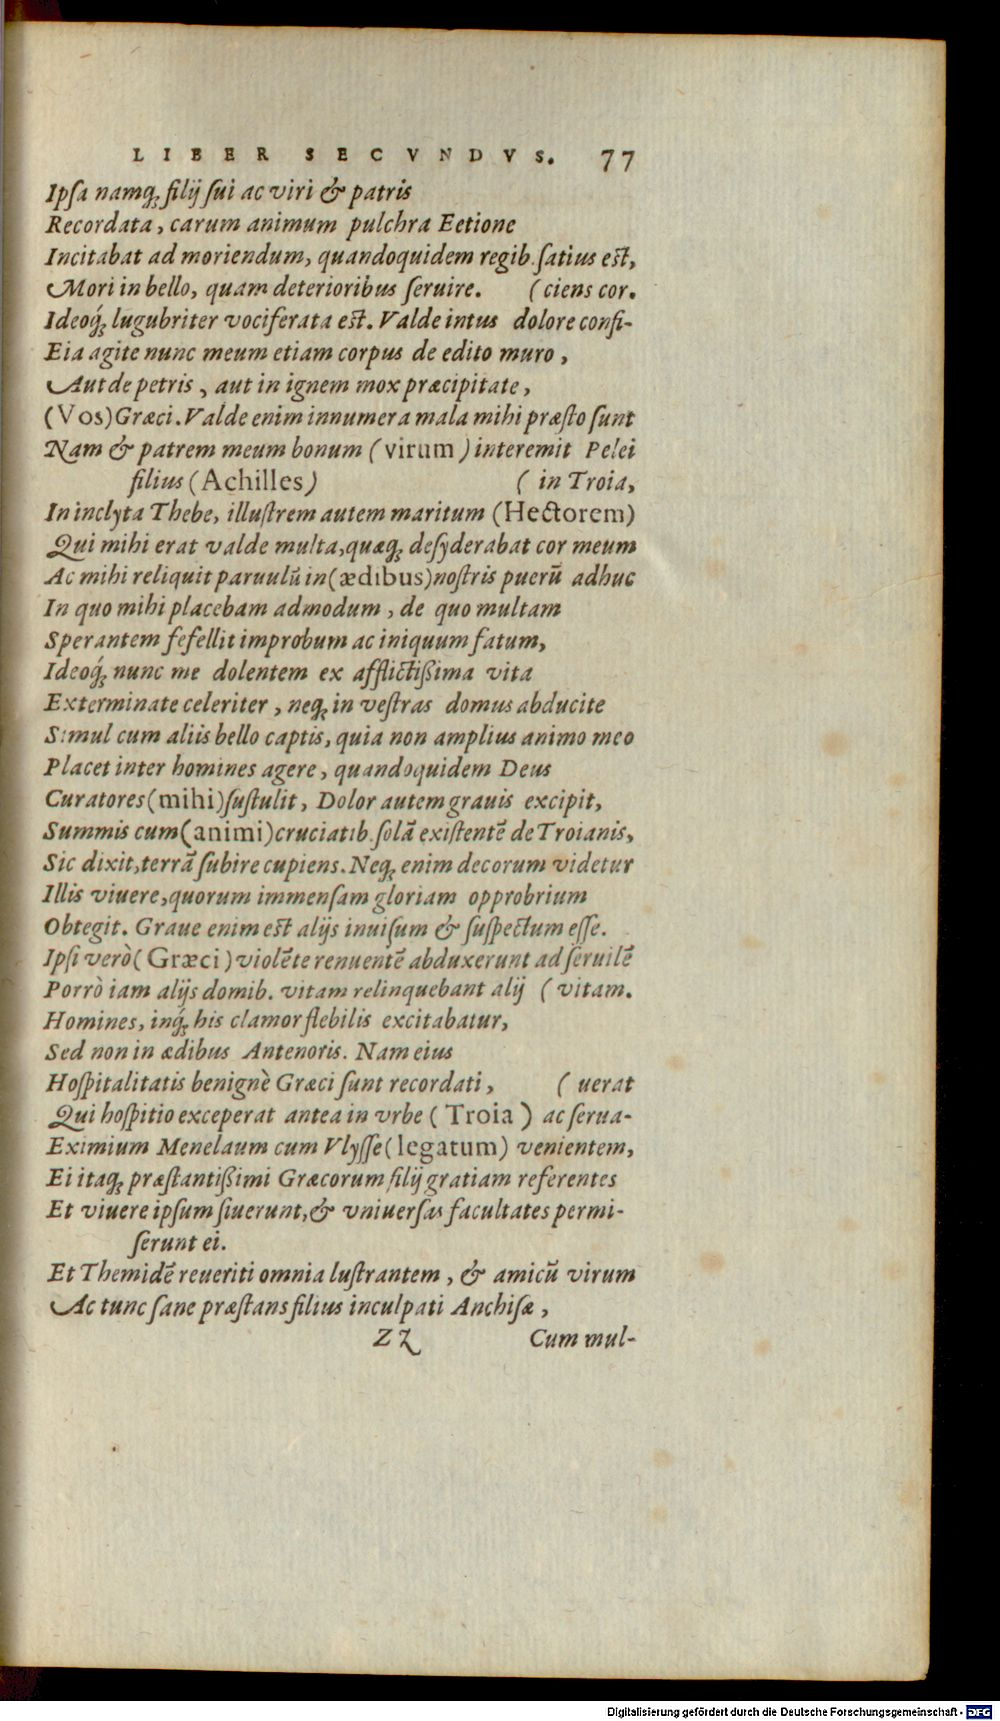 LIBER SECVNDVS. 77
Ipſa namq; filij ſui ac viri & patris
Recordata, carum animum pulchra Eetione
Incitabat ad moriendum, quandoquidem regib. ſatius eſt,
Mori in bello, quam deterioribus ſeruire. (ciens cor.
Ideoq́; lugubriter vociferata eſt. Valde intus dolore confi-
Eia agite nunc meum etiam corpus de edito muro,
Aut de petris, aut in ignem mox præcipitate,
(Vos) Græci. Valde enim innumera mala mihi præſto ſunt
Nam & patrem meum bonum (virum) interemit Pelei
filius (Achilles) (in Troia,
In inclyta Thebe, illuſtrem autem maritum (Hectorem)
Qui mihi erat valde multa, quæq; deſyderabat cor meum
Ac mihi reliquit paruulũ in (ædibus) noſtris puerũ adhuc
In quo mihi placebam admodum, de quo multam
Sperantem fefellit improbum ac iniquum fatum,
Ideoq́; nunc me dolentem ex afflictißima vita
Exterminate celeriter, neq; in veſtras domus abducite
Simul cum aliis bello captis, quia non amplius animo meo
Placet inter homines agere, quandoquidem Deus
Curatores (mihi) ſuſtulit, Dolor autem grauis excipit,
Summis cum (animi) cruciatib. ſolã exiſtentẽ de Troianis,
Sic dixit, terrã ſubire cupiens. Neq; enim decorum videtur
Illis viuere, quorum immenſam gloriam opprobrium
Obtegit. Graue enim eſt alijs inuiſum & ſuſpectum eſſe.
Ipſi verò (Græci) violẽte renuentẽ abduxerunt ad ſeruilẽ
Porrò iam alijs domib. vitam relinquebant alij (vitam.
Homines, inq́; his clamor flebilis excitabatur,
Sed non in ædibus Antenoris. Nam eius
Hoſpitalitatis benignè Græci ſunt recordati, (uerat
Qui hoſpitio exceperat antea in vrbe (Troia) ac ſerua-
Eximium Menelaum cum Vlyſſe (legatum) venientem,
Ei itaq; præſtantißimi Græcorum filij gratiam referentes
Et viuere ipſum ſiuerunt, & vniuerſas facultates permi-
ſerunt ei.
Et Themidẽ reueriti omnia luſtrantem, & amicũ virum
Ac tunc ſane præſtans filius inculpati Anchiſæ,
Zz Cum mul-
Digitalisierung gefördert durch die Deutsche Forschungsgemeinschaft - DFG